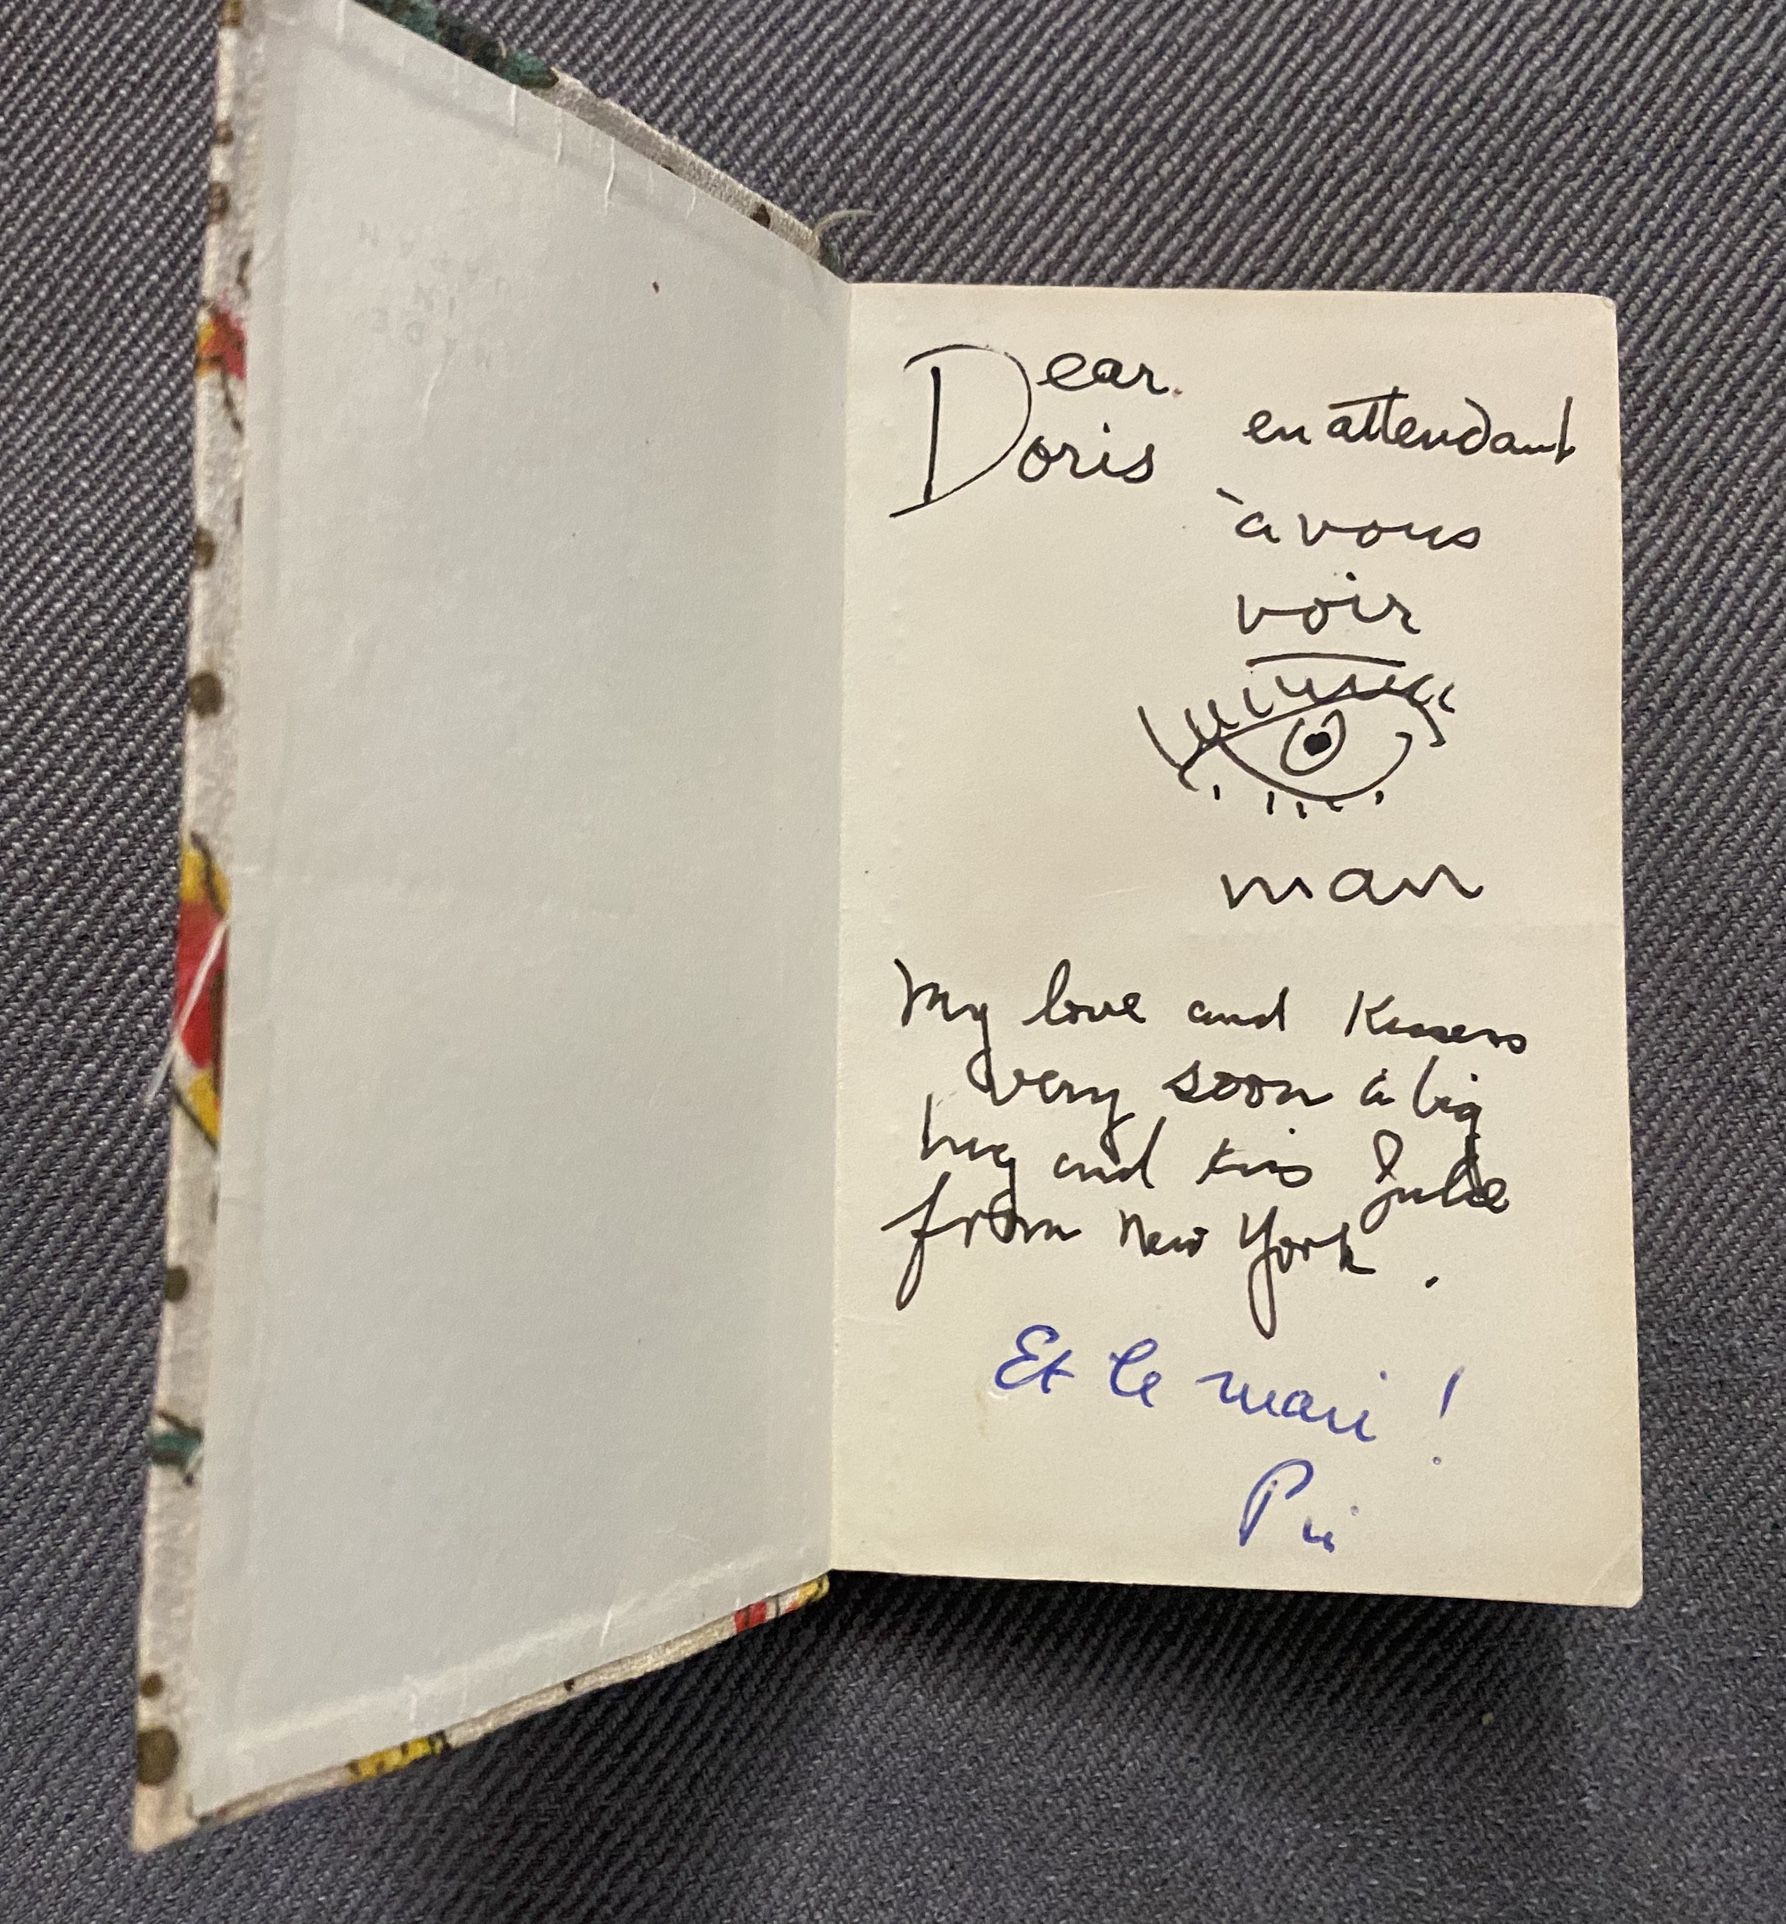 Dear
Doris
en attendant
à vous
voir
man
My love and Kisses
very soon a big
hug and kiss Julie
from New York.
Et le mari !